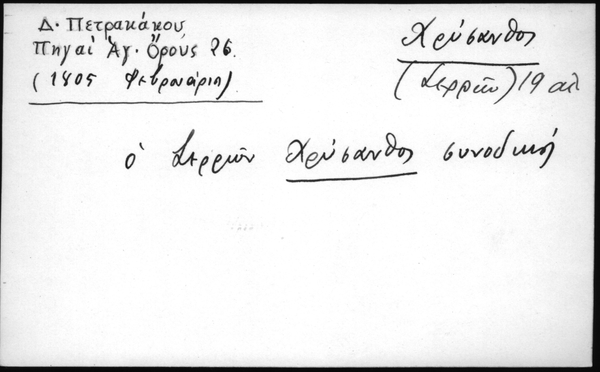 Δ. Πετρακάκου
Πηγαὶ Ἁγ. Ὄρους 26.
(1805 Φεβρουάριος)
Χρύσανθος
(Σερρῶν) 19 αἰ.
ὁ Σερρῶν Χρύσανθος συνοδικός